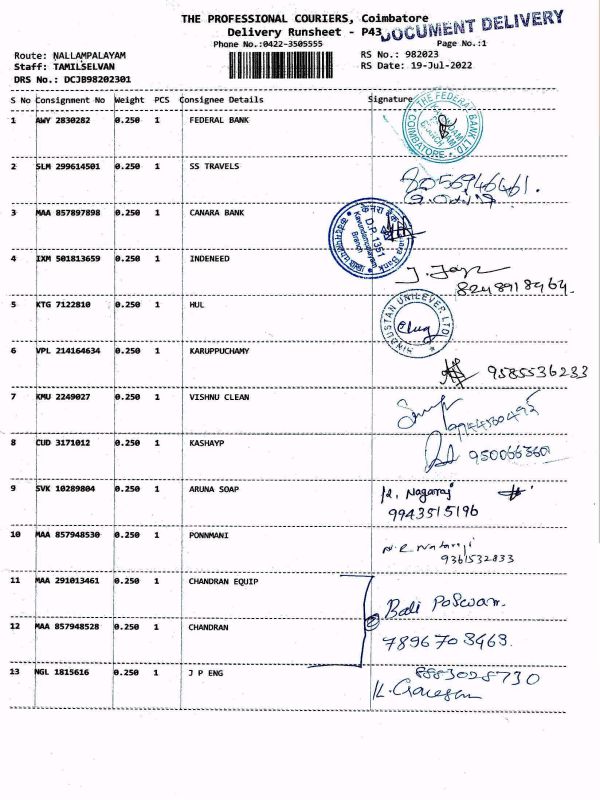 THE PROFESSIONAL COURIERS, Coimbatore
DOCUMENT DELIVERY
Delivery Runsheet - P43
Phone No.:0422-3505555
Page No.:1
Route: NALLAMPALAYAM
RS No.: 982023
Staff: TAMILSELVAN
RS Date: 19-Jul-2022
DRS No.: DCJB98202301
S No Consignment No Weight PCS Consignee Details Signature
1 AWY 2830282 0.250 1 FEDERAL BANK
THE FEDERAL BANK LTD. COIMBATORE
2 SLM 299614501 0.250 1 SS TRAVELS
8056946461.
3 MAA 857897898 0.250 1 CANARA BANK
केनरा बैंक Canara Bank
D.P. 1351
Kavundampalayam
Branch
4 IXM 501813659 0.250 1 INDENEED
8248918464.
5 KTG 7122810 0.250 1 HUL
HINDUSTAN UNILEVER LTD.
6 VPL 214164634 0.250 1 KARUPPUCHAMY
9585536233
7 KMU 2249027 0.250 1 VISHNU CLEAN
8 CUD 3171012 0.250 1 KASHAYP
9 SVK 10289804 0.250 1 ARUNA SOAP
K. Nagaraj
9943515196
10 MAA 857948530 0.250 1 PONNMANI
N.R. Nataraji
9361532833
11 MAA 291013461 0.250 1 CHANDRAN EQUIP
Bali Poswan.
12 MAA 857948528 0.250 1 CHANDRAN
7896703463.
13 NGL 1815616 0.250 1 J P ENG
8883028730